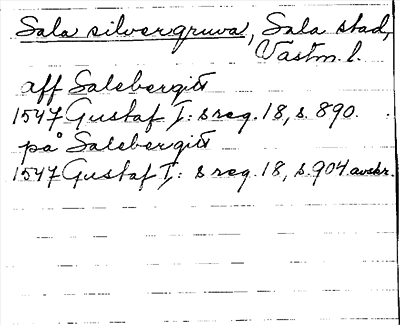 Sala silvergruva, Sala stad,
Västm. l.
aff Salebergitt
1547 Gustaf I: s reg. 18, s. 890.
på Salebergitt
1547 Gustaf I: s reg. 18, s. 904 avskr.